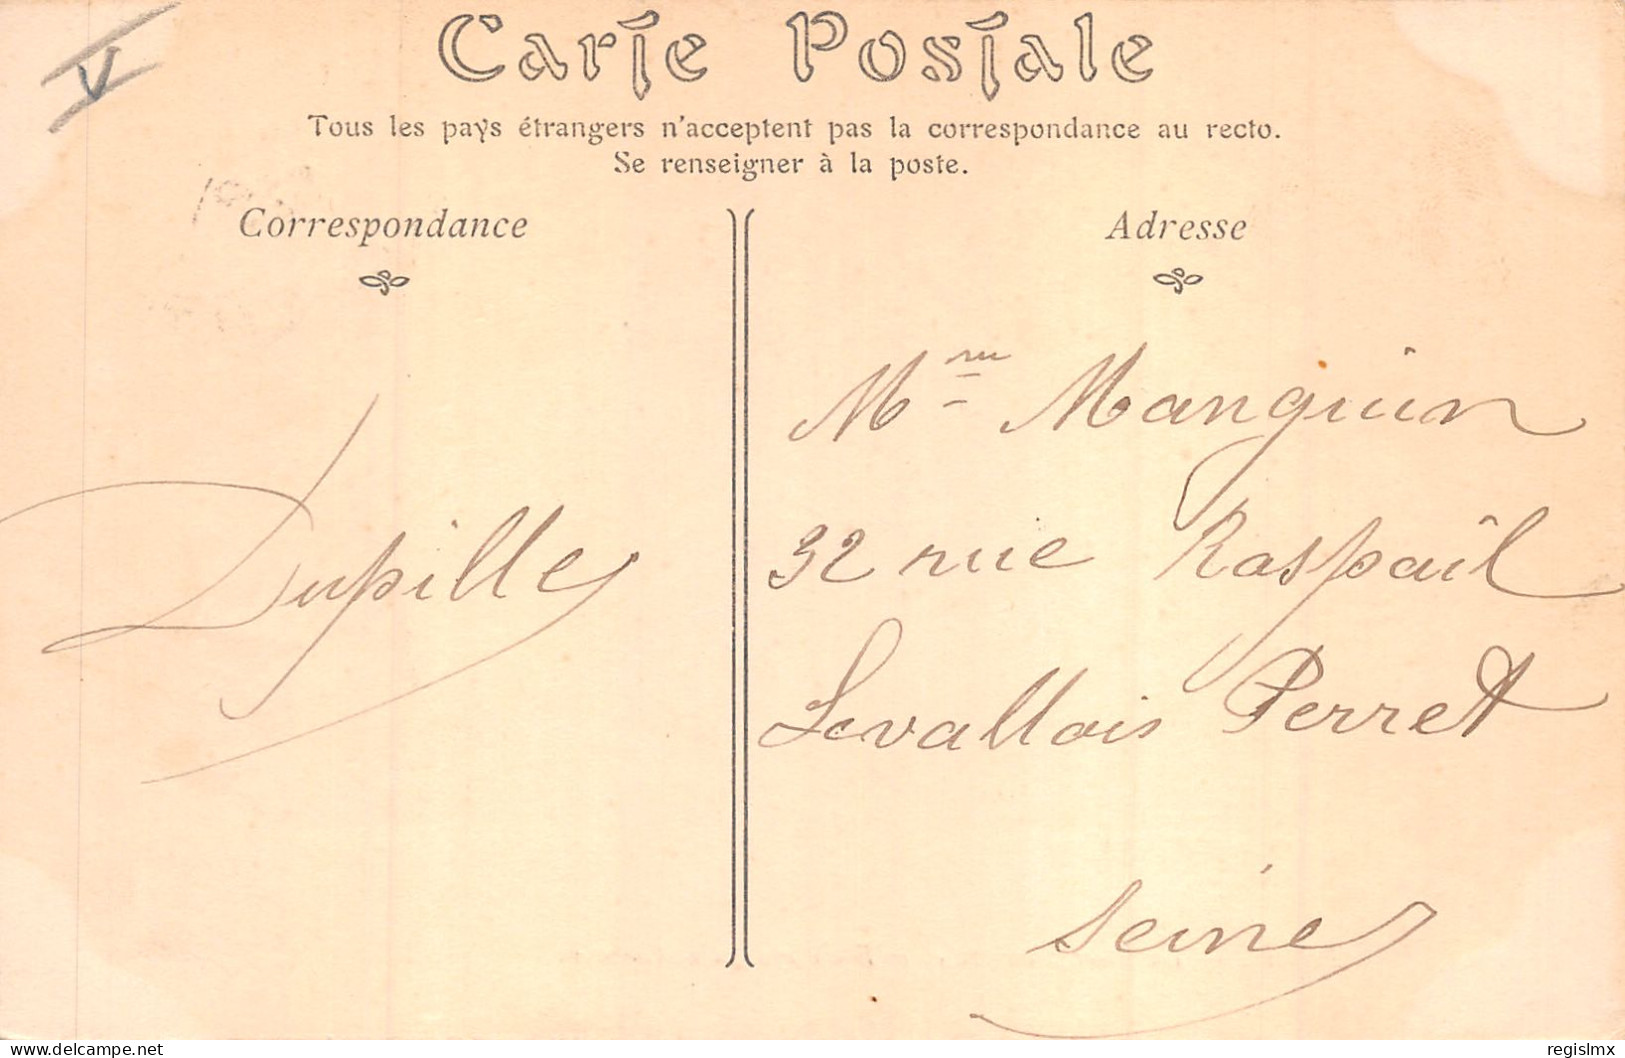 V
Carte Postale
Tous les pays étrangers n'acceptent pas la correspondance au recto.
Se renseigner à la poste.
Correspondance
Adresse
Dupille
Mme Manguin
32 rue Raspail
Levallois Perret
Seine
delcampe.net
regislmx